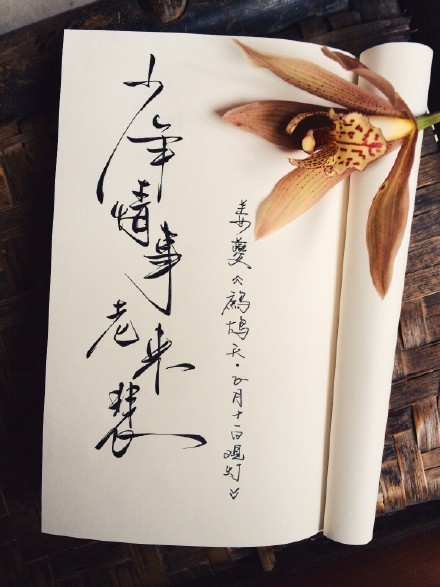 少年情事老来裴
姜夔《鹧鸪天·正月十一日观灯》